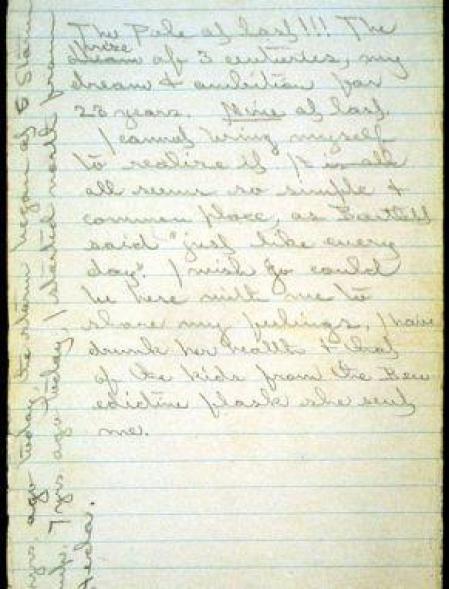 The Pole at last!!! The
prize
dream of 3 centuries, my
dream & ambition for
23 years. Mine at last.
I cannot bring myself
to realize it. It is all
all seems so simple &
common place, as Bartlett
said "just like every
day". I wish Jo could
be here with me to
share my feelings, I have
drunk her health & that
of the kids from the Ben
edictine flask she sent
me.
yrs. ago today, the storm began at 6
7 yrs ago today, I started north from
Hecla.